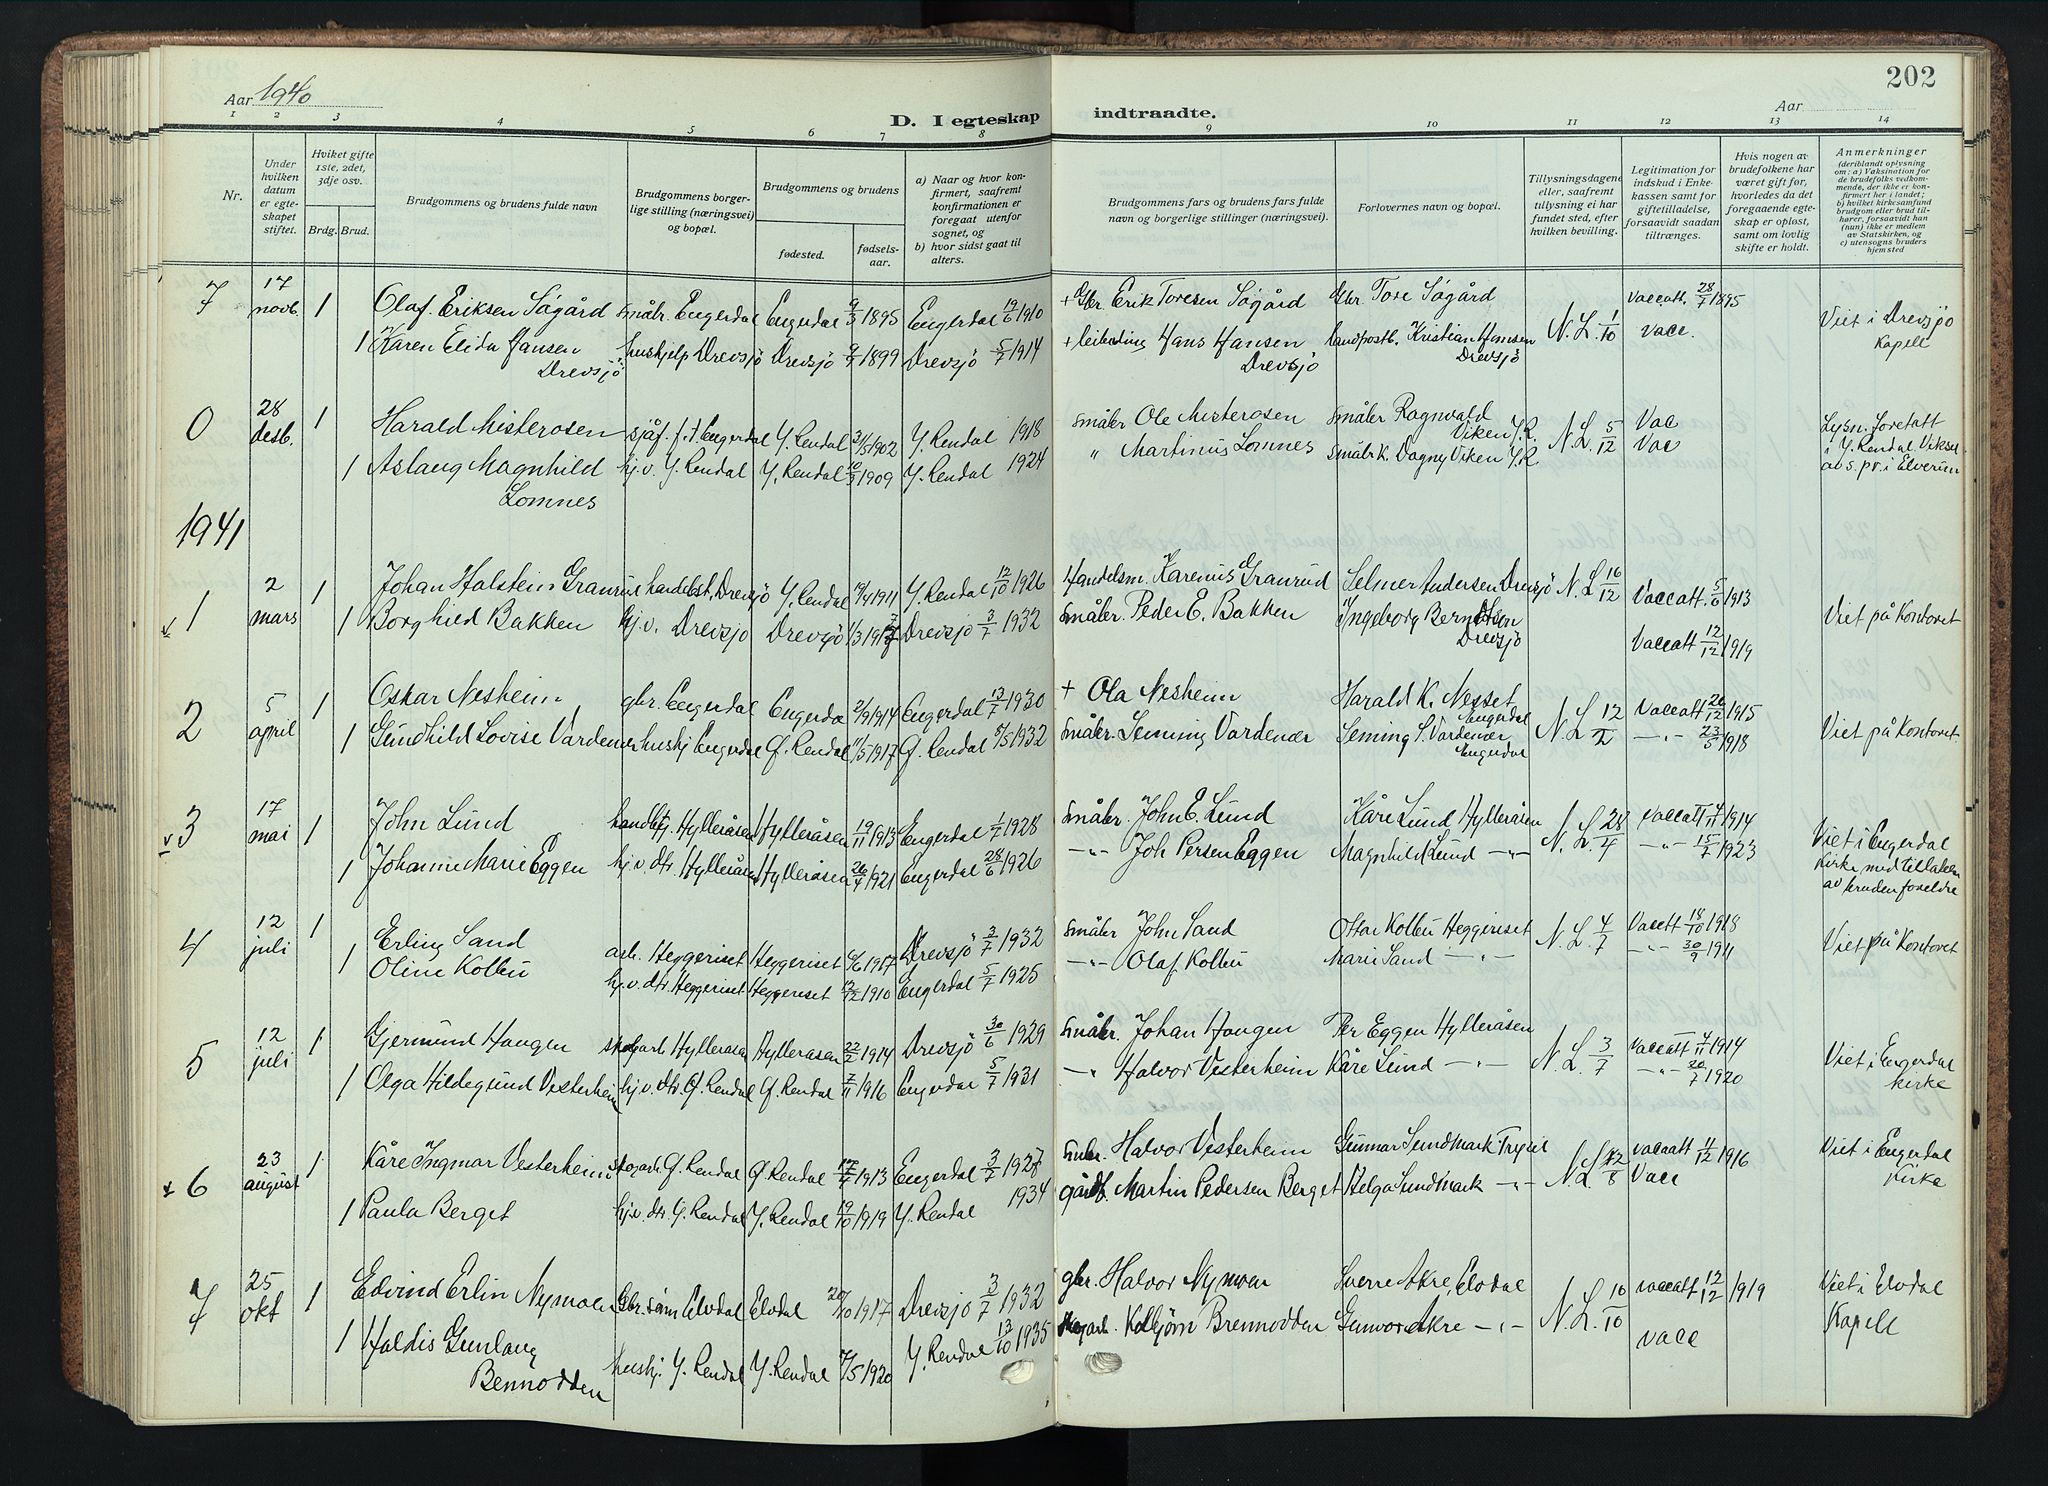 202
Aar 1940
D. I egteskap indtraadte.
Aar
1 2 3 4 5 6 7 8 9 10 11 12 13 14
Nr.
Under hvilken datum er egteskapet stiftet.
Hviket gifte 1ste, 2det, 3dje osv.
Brdg. Brud.
Brudgommens og brudens fulde navn
Brudgommens borgerlige stilling (næringsvei) og bopæl.
Brudgommens og brudens
fødested.
fødselsaar.
a) Naar og hvor konfirmert, saafremt konfirmationen er foregaat utenfor sognet, og
b) hvor sidst gaat til alters.
Brudgommens fars og brudens fars fulde navn og borgerlige stillinger (næringsvei).
Forlovernes navn og bopæl.
Tillysningsdagene eller, saafremt tillysning ei har fundet sted, efter hvilken bevilling.
Legitimation for indskud i Enkekassen samt for giftetilladelse, forsaavidt saadan tiltrænges.
Hvis nogen av brudefolkene har været gift før, hvorledes da det foregaaende egteskap er opløst, samt om lovlig skifte er holdt.
Anmerkninger
(deriblandt oplysning om: a) Vaksination for de brudefolks vedkommende, der ikke er konfirmert her i landet; b) hvilket kirkesamfund brudgom eller brud tilhører, forsaavidt han (hun) ikke er medlem av Statskirken, og c) utensogns bruders hjemsted
7 17 novb. 1 Olaf Eriksen Sögård småbr. Engerdal Engerdal 9/3 1895 Engerdal 19/6 1910 + Gbr Erik Toresen Sögård Gbr Tore Sögård N.L. 1/10 Vaccatt. 28/7 1895 Viet i Drevsjö
1 Karen Elida Hansen hushjelp Drevsjö Drevsjö 1899 Drevsjö 5/7 1914 + Hans Hansen landpostb. Kristian Hansen vacc. Kapell
Drevsjö Drevsjö Drevsjö
28 desb. 1 Harald Misterosen sjåf. Engerdal Y. Rendal 1902 Y. Rendal 1918 småbr Ole Misterosen småbr Ragnvald Viken Y.R. N.L. 5/12 Vac Lysn. foretatt
1 Aslaug Magnhild hj.v. Y. Rendal Y. Rendal 10/3 1909 Y. Rendal 1924 " Martinus Lomnes småbr K. Dagny Viken Y.R Vac i Y. Rendal
Lomnes av s.pr. i Elverum
1941
1 2 mars 1 Johan Halstein Granrud Drevsjö Y. Rendal 1911 Y. Rendal 12/10 1926 Handelsm. Karenus Granrud Selmer Andersen Drevsjö N.L. 16/12 Vaccatt. 5/6 1913
1 Borghild Bakken hj.v. Drevsjö Drevsjö Drevsjö 3/7 1932 småbr. Peder E. Bakken Ingeborg Berntsen Viet på Kontoret
Drevsjö Vaccatt 12/12 1919
2 5 april 1 Oskar Nesheim gbr. Engerdal Engerdal 2/9 1914 Engerdal 13/7 1930 + Ola Nesheim Harald K. Nesset Engerdal N.L. 12/2 Vaccatt 20/12 1915 Viet på Kontoret
1 Gundhild Lovise Vardenær hushj Engerdal Ø. Rendal 1/5 1917 Ø. Rendal 1932 småbr. Semming Vardenær Seming S. Vardenær Engerdal -"- 23/5 1918
3 17 mai 1 John Lund Hylleråsen Hylleråsen 19/11 1913 Engerdal 1/7 1928 småbr. John E. Lund Kåre Lund Hylleråsen N.L. 28/4 vaccatt 1914 Viet i Engerdal
1 Johanne Marie Eggen hj.v. dtr. Hylleråsen Hylleråsen 26/4 1921 Engerdal 28/6 1926 -"- Joh Persen Eggen Magnhild Lund -"- -"- 15/7 1923 Kirke med tillatelse
av brudenforeldre
4 12 juli 1 Erling Sand arb. Heggeriset Heggeriset 1917 Drevsjö 3/7 1932 småbr John Sand Ottar Kolbu Heggeriset N.L. 4/7 Vacatt 18/10 1918 Viet på Kontoret
1 Oline Kolbu hj.v. dtr. Heggeriset Heggeriset 1910 Engerdal 5/7 1925 -"- Olaf Kolbu Marie Sand -"- -"- 30/9 1911
5 12 juli 1 Gjermund Haugen skogarb Hylleråsen Hylleråsen 22/2 1914 Drevsjö 30/6 1929 småbr. Johan Haugen Per Eggen Hylleråsen N.L. 3/7 Vaccatt 1914 Viet i Engerdal
1 Olga Hildegund Vesterheim hj.v. dtr. Ø. Rendal Ø. Rendal 7/11 1916 Engerdal 5/7 1931 -"- Halvor Vesterheim Kåre Lund -"- -"- 20/7 1920 kirke
6 23 august 1 Kåre Ingmar Vesterheim skogarb. Ø. Rendal Ø. Rendal 17/4 1913 Engerdal 3/7 Halvor Vesterheim Gunnar Sundmark Trysil N.L. vaccatt 1916 Viet i Engerdal
1 Paula Berget hj.v. dtr. Y. Rendal Y. Rendal 19/10 1919 Y. Rendal 1934 Martin Pedersen Berget Helga Sundmark -"- Vacc Kirke
7 25 okt 1 Edvind Erlin Nymoen Gbr.sönn Elvdal Elvdal 1917 Drevsjö 3/7 1932 gbr. Halvor Nymoen Sverre Akre, Elvdal N.L. 10/10 vaccatt 12/12 1919 Viet i Elvdal
1 Haldis Gunlaug hushj. Y. Rendal Y. Rendal 1920 Y. Rendal 13/10 1935 skogarb. Kolbjörn Brennodden Gunvor Akre -"- vacc Kapell
Bennodden